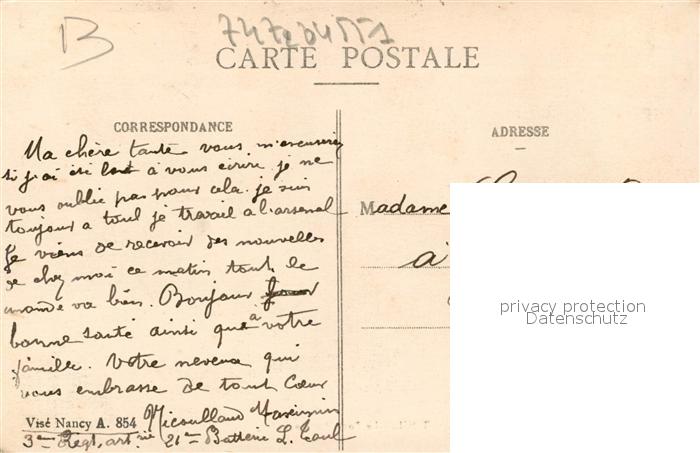 B
CARTE POSTALE
CORRESPONDANCE
ADRESSE
Ma chère tante vous m'excuserez
si j'ai été lent à vous écrire je ne
vous oublie pas pour cela. je suis
toujour a toul je travail à l'arsenal
Je viens de recevoir des nouvelles
de chez moi ce matin tout le
monde va bien. Bonjour
bonne santé ainsi que a votre
famille. Votre neveux qui
vous embrasse de tout Cœur
Madame
à
privacy protection
Datenschutz
Visé Nancy A. 854
3eme Regt, art rie 21e Batterie Toul